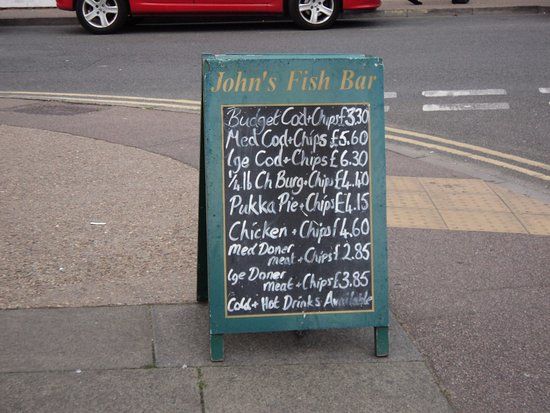 John's Fish Bar
Budget Cod+Chips £3.30
Med Cod+Chips £5.60
lge Cod+Chips £6.30
1/4 lb Ch Burg+Chips £4.40
Pukka Pie+Chips £4.15
Chicken+Chips £4.60
Med Doner
meat+Chips £2.85
lge Doner
meat+Chips £3.85
Cold + Hot Drinks Available